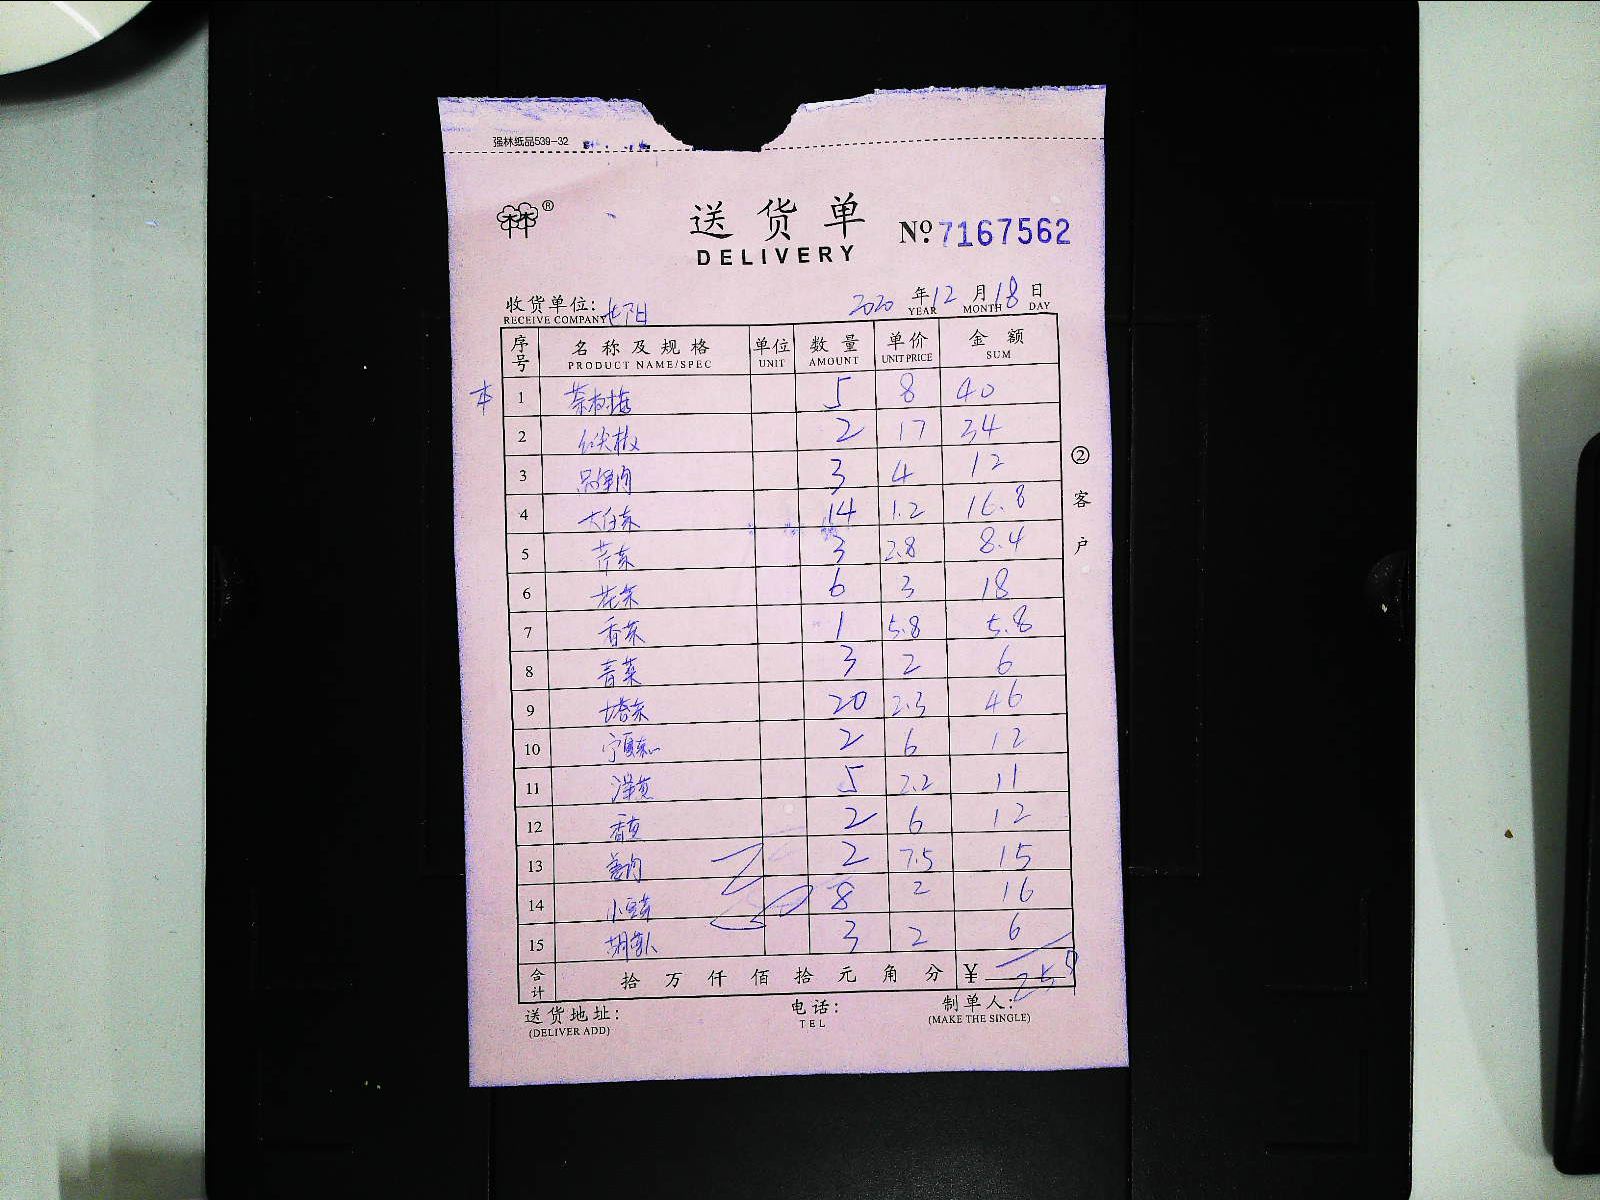 强林纸品539-32
林林®
送货单 No. 7167562
DELIVERY
收货单位: 2020 年 12 月 18 日
RECEIVE COMPANY YEAR MONTH DAY
序号 名称及规格 单位 数量 单价 金额
PRODUCT NAME/SPEC UNIT AMOUNT UNIT PRICE SUM
1 5 8 40
2 红尖椒 2 17 34
3 3 4 12
4 大白菜 14 1.2 16.8
5 芹菜 3 2.8 8.4
6 花菜 6 3 18
7 香菜 1 5.8 5.8
8 青菜 3 2 6
9 塔菜 20 2.3 46
10 宁夏菜心 2 6 12
11 洋葱 5 2.2 11
12 香葱 2 6 12
13 姜肉 2 7.5 15
14 8 2 16
15 3 2 6
合计 拾 万 仟 佰 拾 元 角 分 ¥ 259
送货地址: 电话: 制单人:
(DELIVER ADD) TEL (MAKE THE SINGLE)
②客户